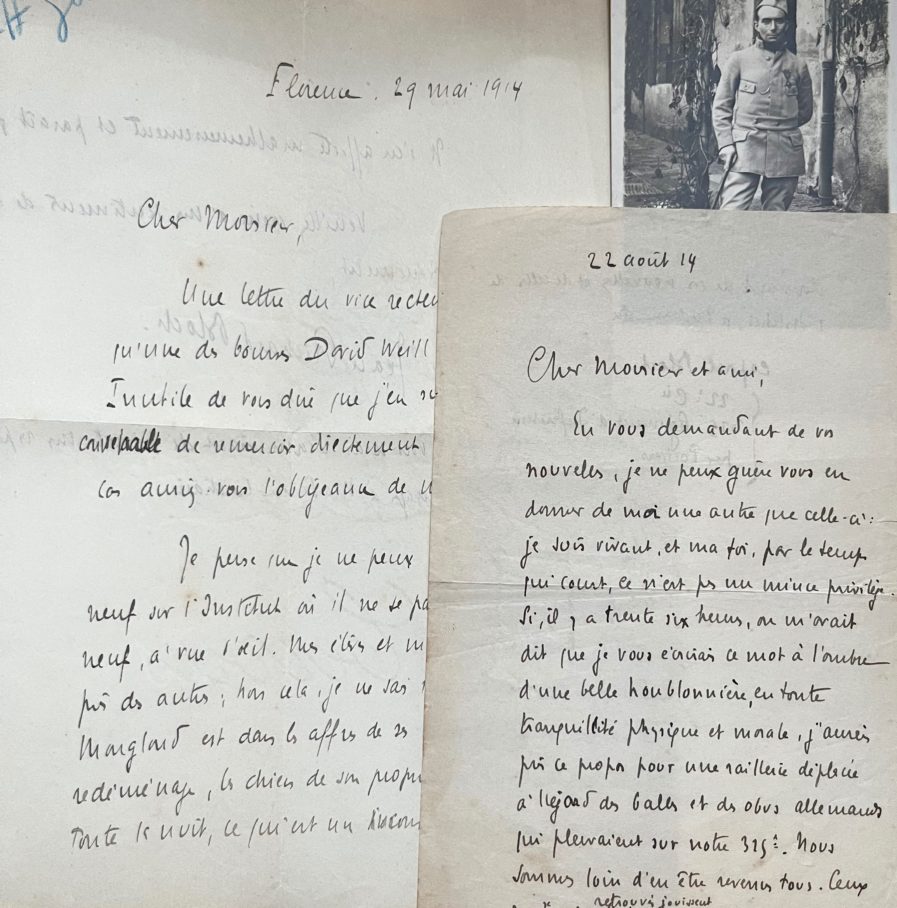 Florence. 29 mai 1914
Cher Monsieur,
Une lettre du vice recteu
qu'une des bourses David Weill
Inutile de vous dire que j'en su
convenable de remercier directement
cas auriez-vous l'obligeance de
Je pense que je ne peux
neuf sur l'Institut où il ne se pa
neuf, à vue d'oeil. Mes élèves et m
près des autres ; hors cela, je ne sais
Monglond est dans les affres de ses
redéménage, les chiens de son propri
toute la nuit, ce qui est un
22 août 14
Cher Monsieur et ami,
En vous demandant de vos
nouvelles, je ne peux guère vous en
donner de moi une autre que celle-ci :
je suis vivant, et ma foi, par le temps
qui court, ce n'est pas un mince privilège.
Si, il y a trente six heures, on m'avait
dit que je vous écrirais ce mot à l'ombre
d'une belle houblonnière, en toute
tranquillité physique et morale, j'aurais
pris ce propos pour une raillerie déplacée
à l'égard des balles et des obus allemands
qui pleuvaient sur notre 325e. Nous
sommes loin d'en être revenus tous. Ceux
retrouvés jouissent